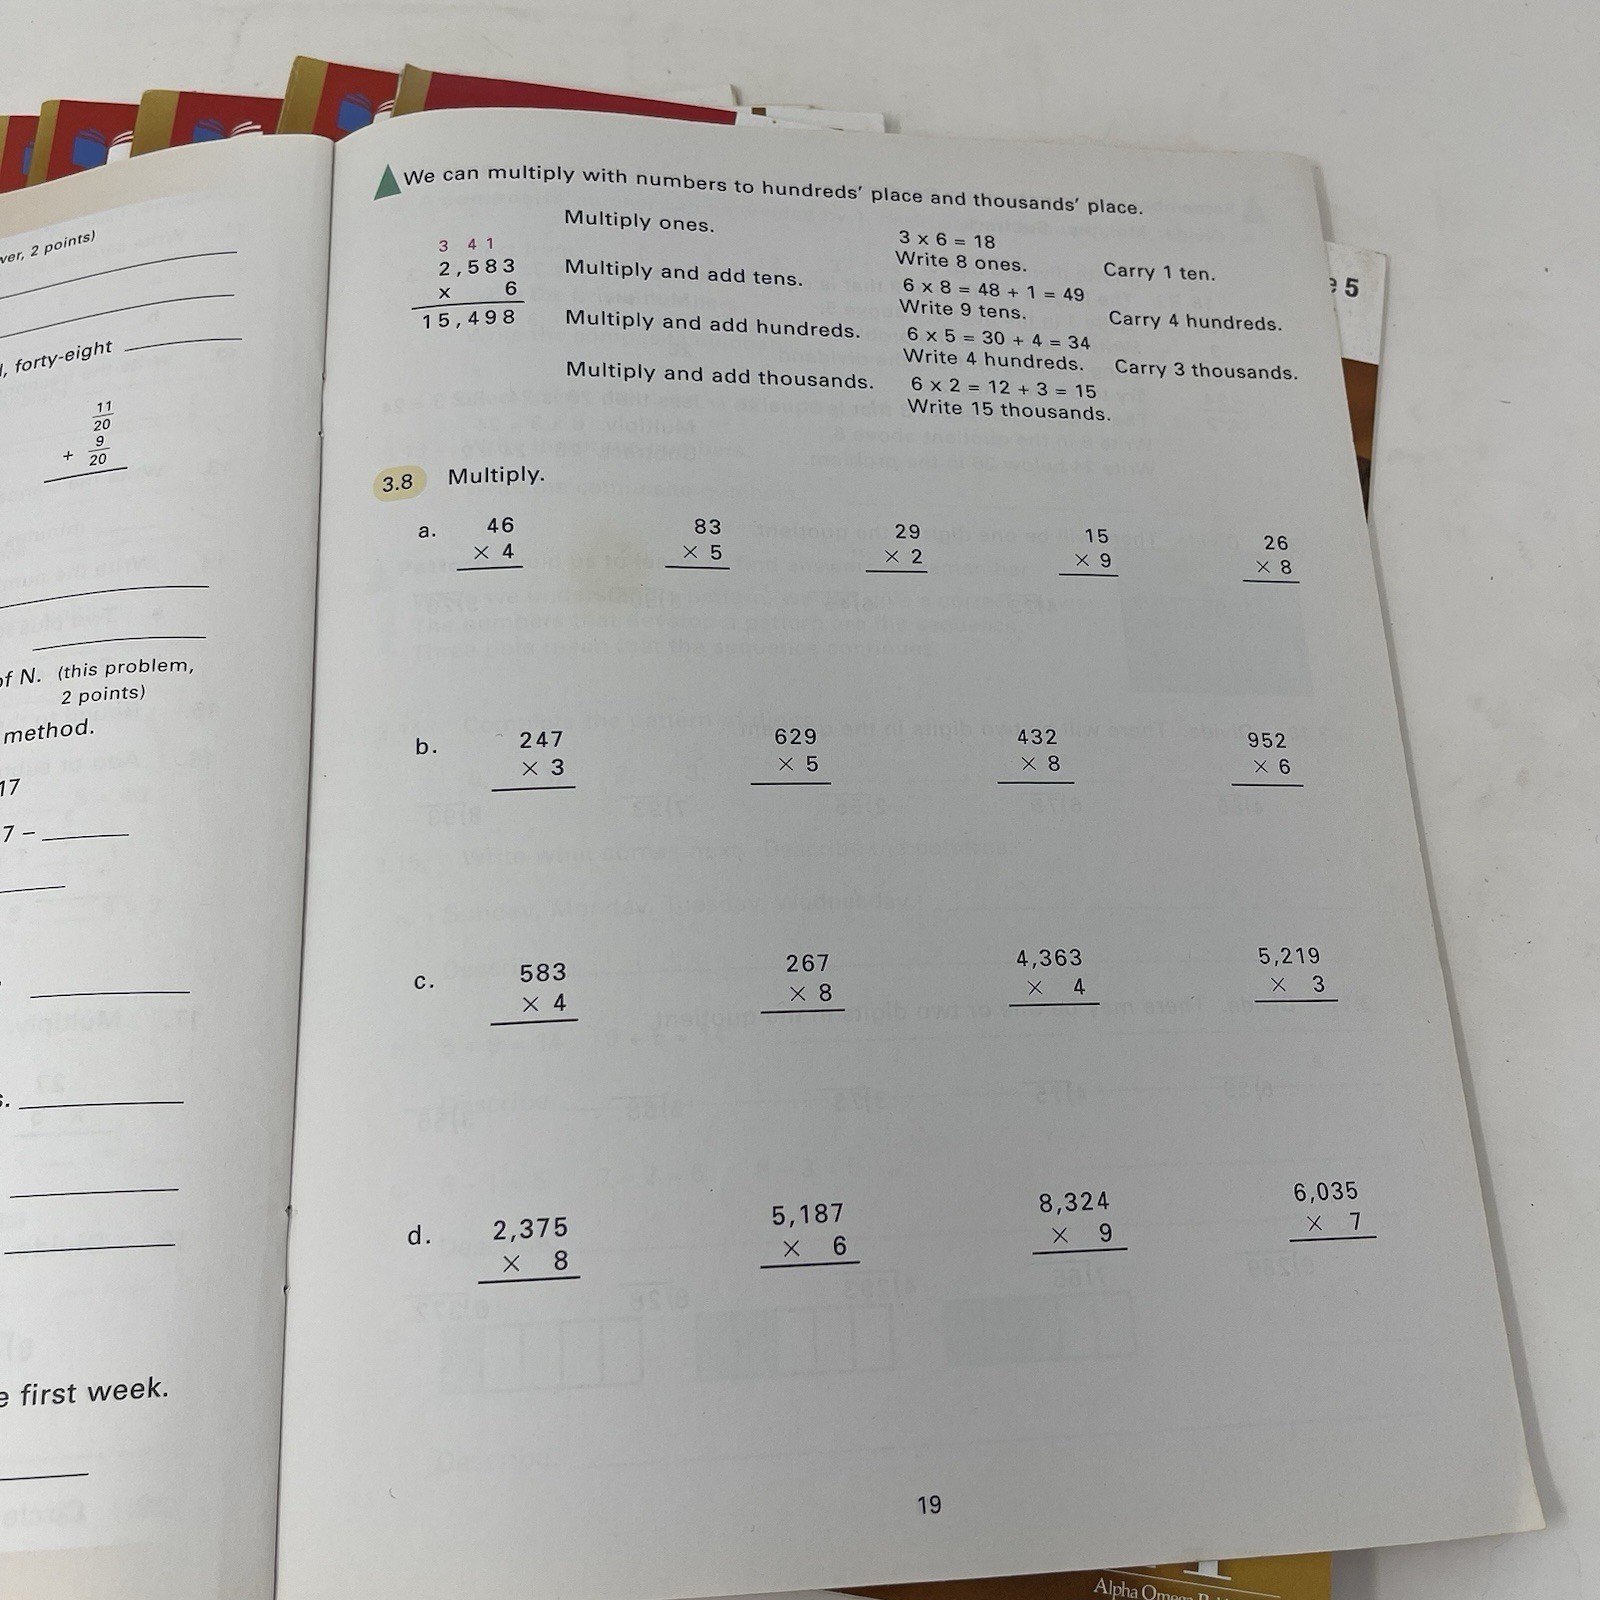 ver, 2 points)
, forty-eight
11
20
9
+ 20
of N. (this problem,
2 points)
method.
17
7 –
s.
e first week.
We can multiply with numbers to hundreds' place and thousands' place.
3 41
2,583
x 6
15,498
Multiply ones.
3 x 6 = 18
Write 8 ones. Carry 1 ten.
Multiply and add tens.
6 x 8 = 48 + 1 = 49
Write 9 tens. Carry 4 hundreds.
Multiply and add hundreds.
6 x 5 = 30 + 4 = 34
Write 4 hundreds. Carry 3 thousands.
Multiply and add thousands.
6 x 2 = 12 + 3 = 15
Write 15 thousands.
3.8 Multiply.
a. 46 83 29 15 26
× 4 × 5 × 2 × 9 × 8
b. 247 629 432 952
× 3 × 5 × 8 × 6
c. 583 267 4,363 5,219
× 4 × 8 × 4 × 3
d. 2,375 5,187 8,324 6,035
× 8 × 6 × 9 × 7
19
e 5
Alpha Omega